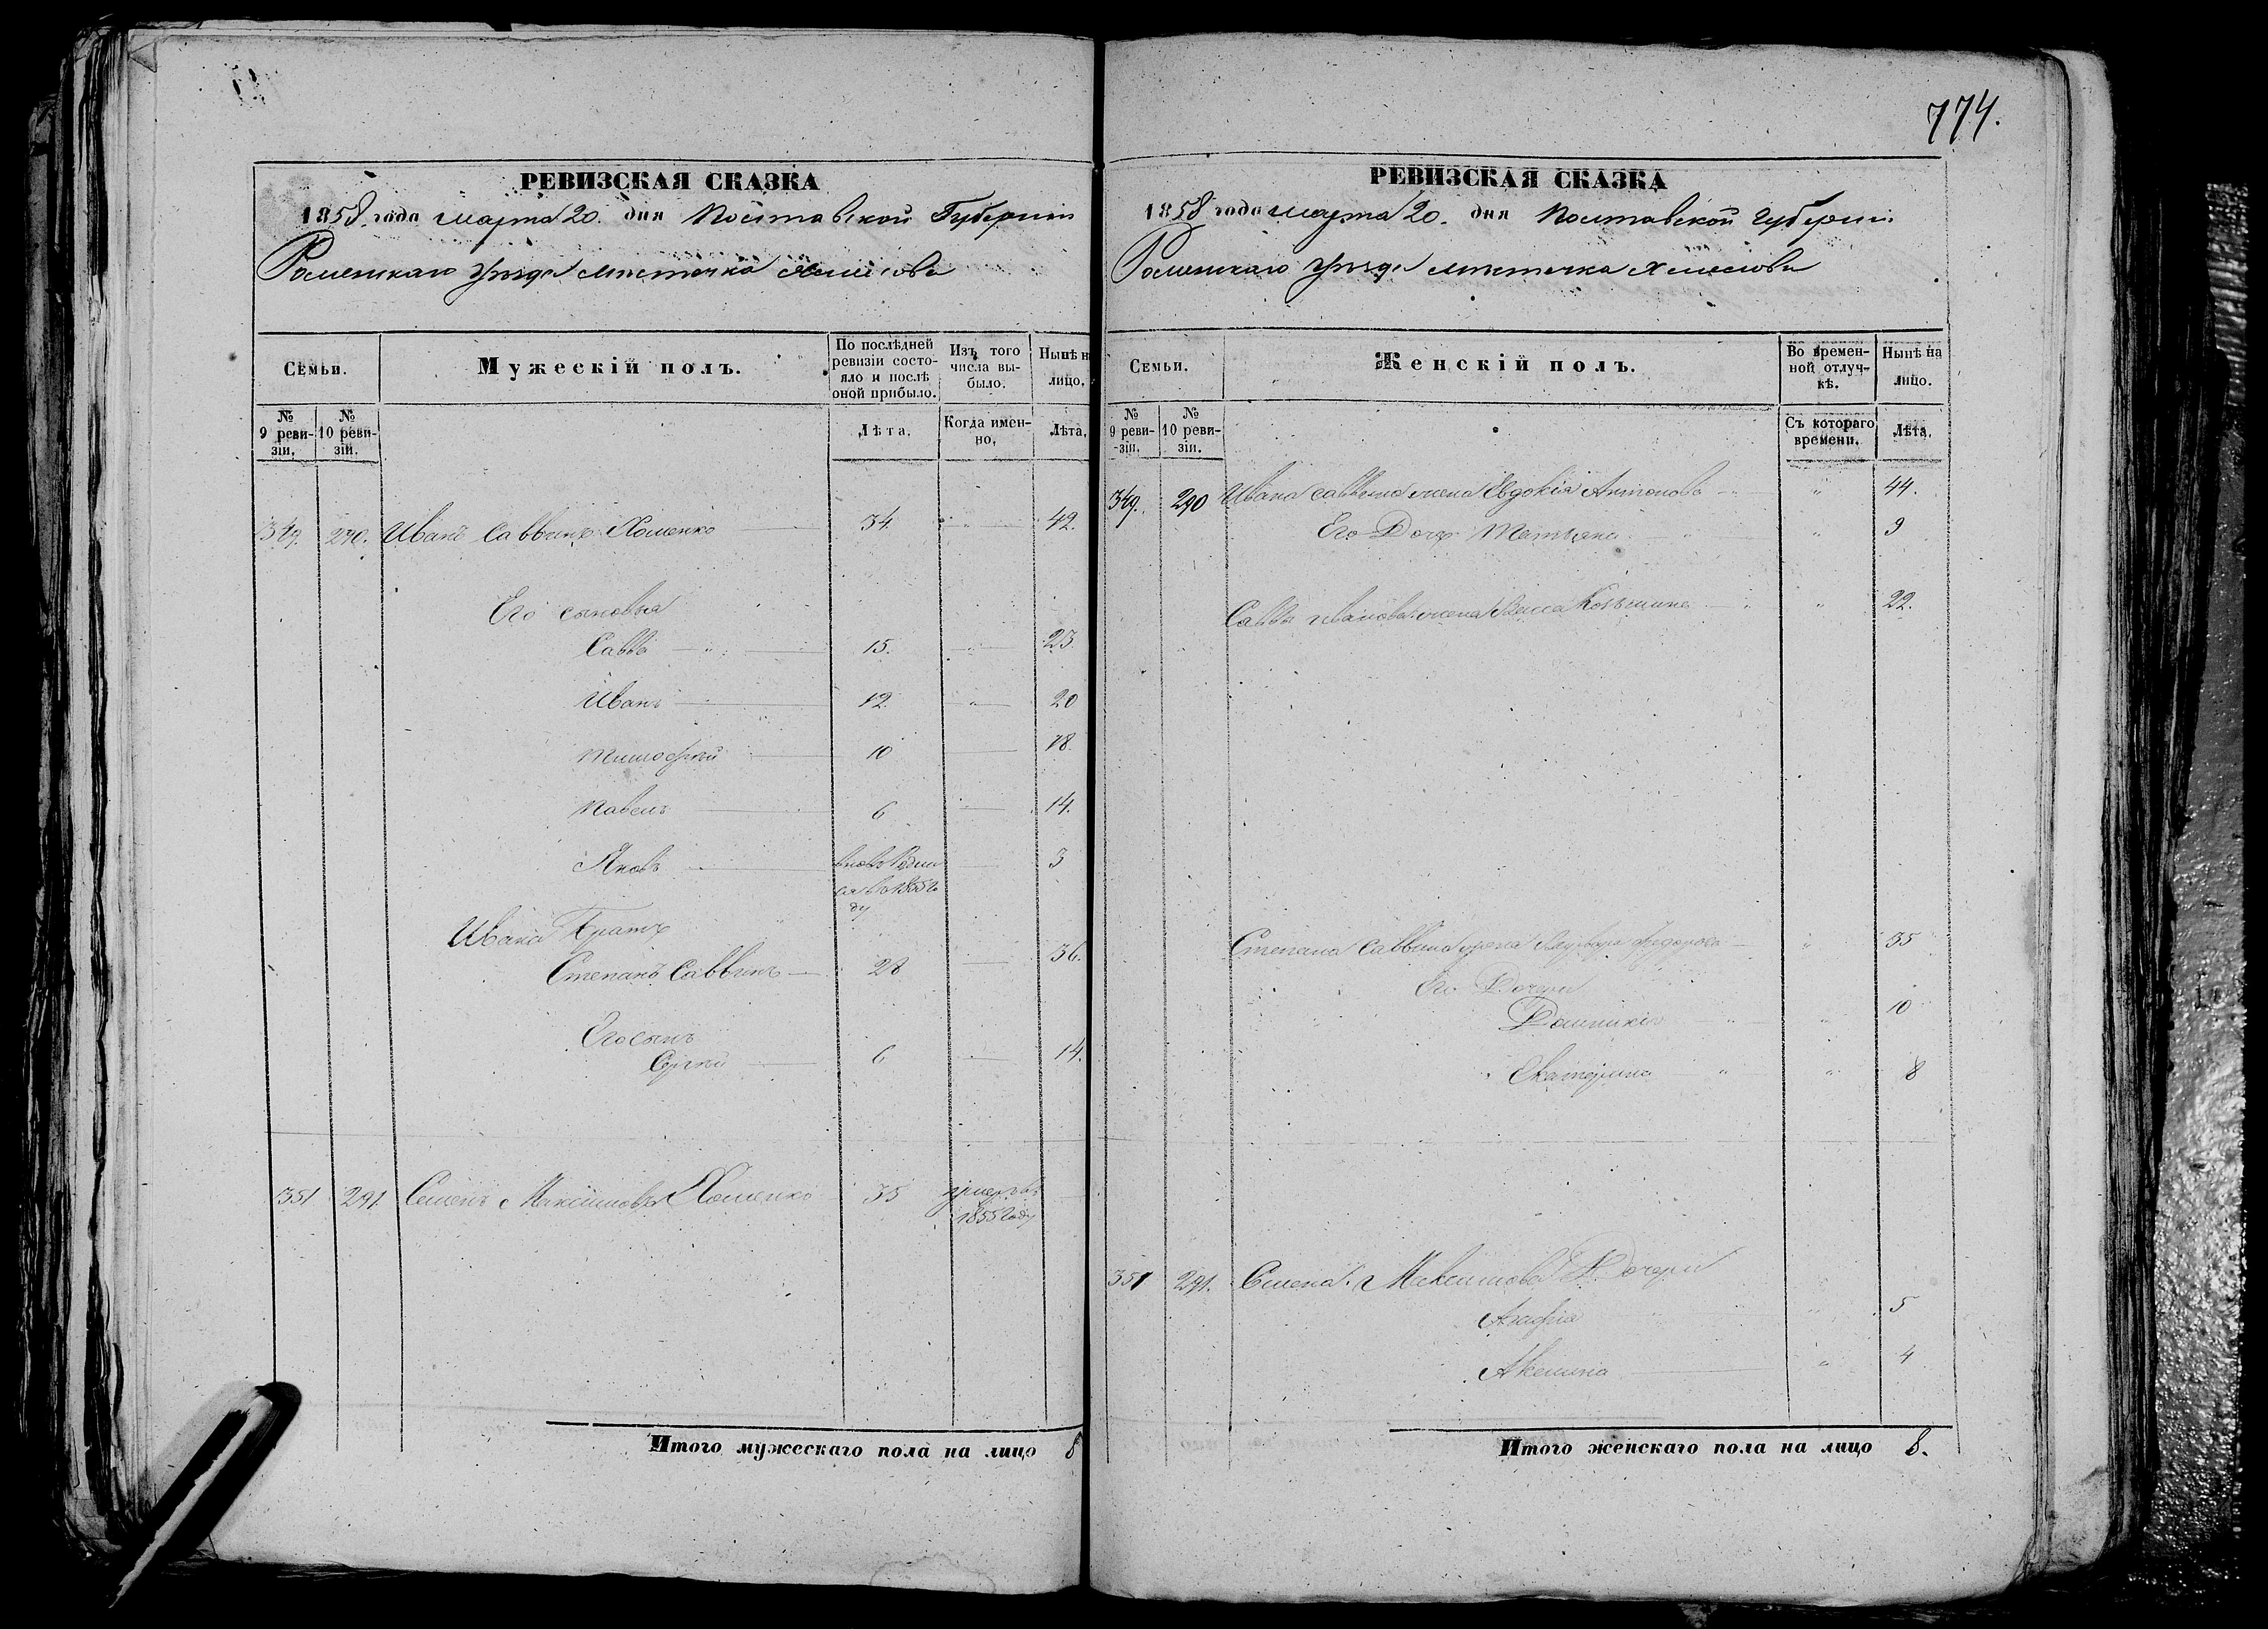 774.
РЕВИЗСКАЯ СКАЗКА
1858 года марта 20. дня Полтавской Губернии
Роменскаго уѣзда мѣстечка Хмелова
Семьи.
Мужескій полъ.
По послѣдней ревизіи состояло и послѣ оной прибыло.
Изъ того числа выбыло.
Нынѣ на лицо.
№ 9 ревизіи.
№ 10 ревизіи.
Лѣта.
Когда именно.
Лѣта.
349. 290. Иванъ Саввинъ Хоменко 34 42.
Его сыновья
Савва 15. 23
Иванъ 12. 20
Тимофей 10 18
Павелъ 6 14.
Яковъ вновь родил 3
ся в 1855 го
ду
Ивана Братъ
Степанъ Саввинъ 28 36.
Его сынъ
6 14.
351 291. Семенъ Максимовъ Хоменко 35 умеръ въ
1855 году
Итого мужескаго пола на лицо 8
РЕВИЗСКАЯ СКАЗКА
1858 года марта 20. дня Полтавской Губернии
Роменскаго уѣзда мѣстечка Хмелова
Семьи.
Женскій полъ.
Во временной отлучкѣ.
Нынѣ на лицо.
№ 9 ревизіи.
№ 10 ревизіи.
Съ котораго времени.
Лѣта.
349. 290 Ивана Саввина жена Евдокія Антонова 44.
Его Дочь Татьяна 9
Саввы Иванова жена 22.
Степана Саввина жена Федорова 35
Его Дочери
Домникія 10
Екатерина 8
351 291. Семена Максимова Дочери
Агафія 5
Акелина 4
Итого женскаго пола на лицо 8.